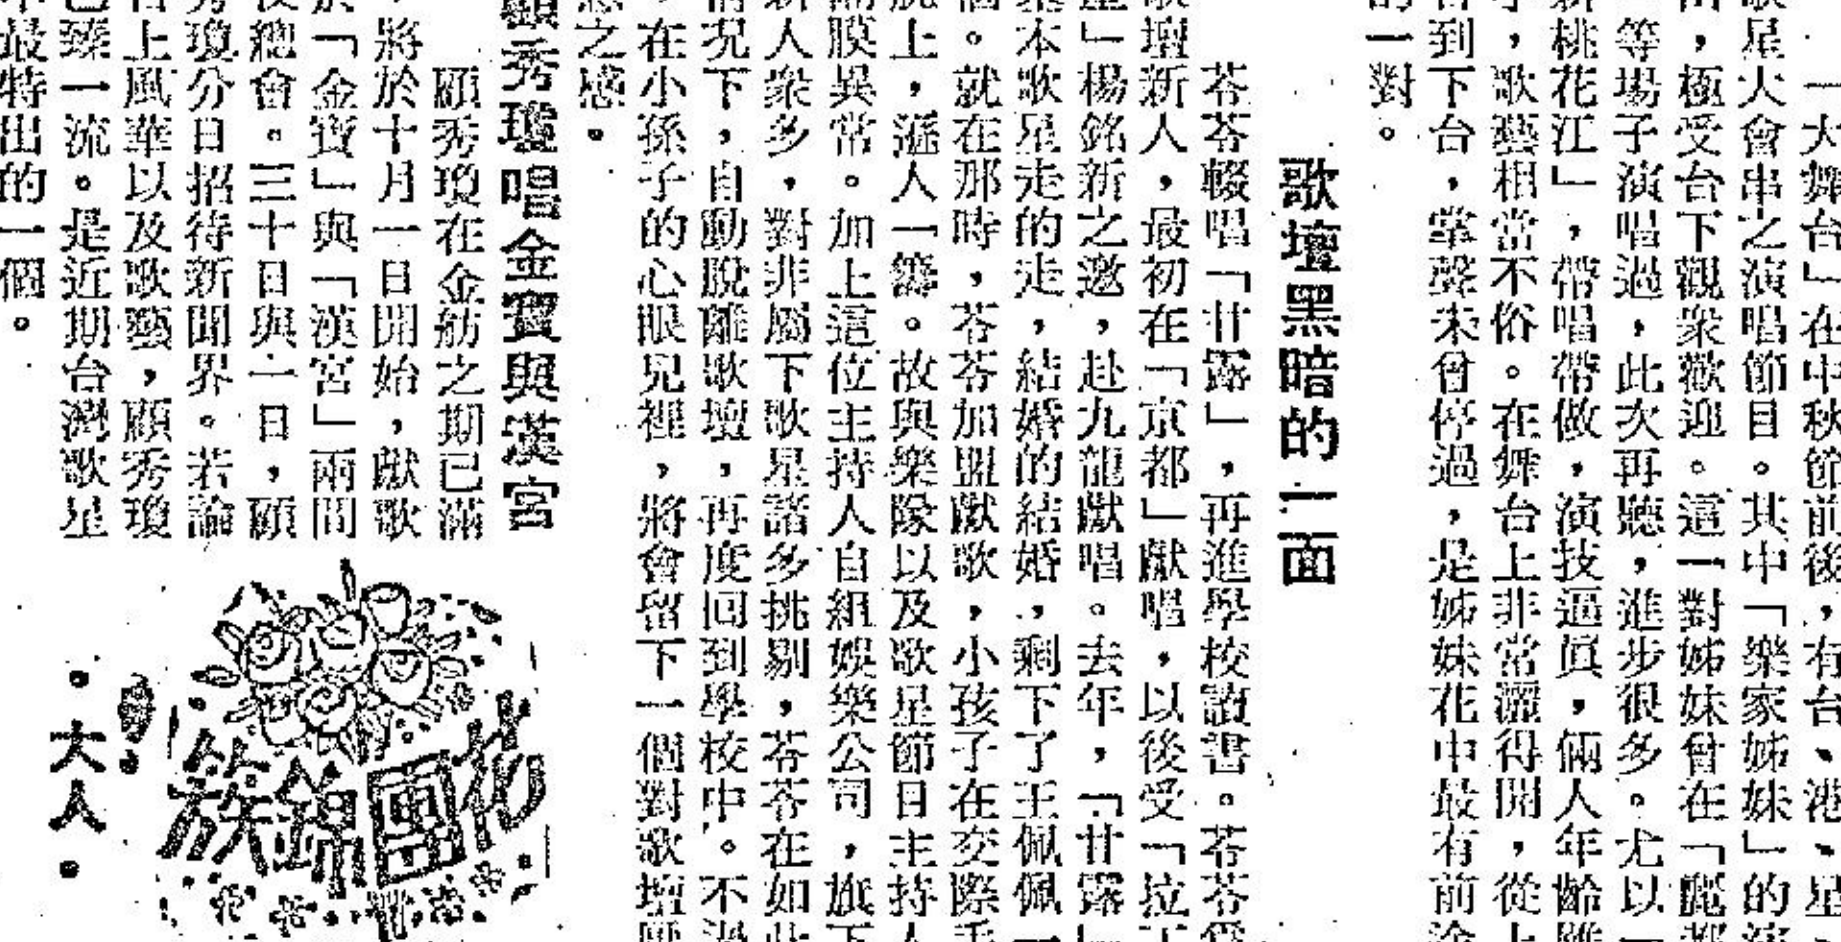 一大舞台」在中秋節前後，有台、港、星
歌星大會串之演唱節目。其中「樂家姊妹」的演
出，極受台下觀衆歡迎。這一對姊妹曾在「麗都
」等場子演唱過，此次再聽，進步很多。尤以「
新桃花江」，帶唱帶做，演技逼眞，倆人年齡雖
小，歌藝相當不俗。在舞台上非常灑得開，從上
台到下台，掌聲未曾停過，是姊妹花中最有前途
的一對。
歌壇黑暗的一面
苓苓輟唱「甘露」，再進學校讀書。苓苓爲
歌壇新人，最初在「京都」獻唱，以後受「拉丁
」楊銘新之邀，赴九龍獻唱。去年，「甘露」
本歌星走的走，結婚的結婚，剩下了王佩佩一
個。就在那時，苓苓加盟獻歌，小孩子在交際手
腕上，遜人一籌。故與樂隊以及歌星節目主持人
隔膜異常。加上這位主持人自組娛樂公司，旗下
新人衆多，對非屬下歌星諸多挑剔，苓苓在如此
情况下，自動脫離歌壇，再度回到學校中。不過
，在小孫子的心眼兒裡，將會留下一個對歌壇
之感。
顧秀瓊唱金寶與漢宮
顧秀瓊在金舫之期已滿
，將於十月一日開始，獻歌
於「金寶」與「漢宮」兩間
夜總會。三十日與一日，顧
秀瓊分日招待新聞界。若論
台上風華以及歌藝，顧秀瓊
已臻一流。是近期台灣歌星
中最特出的一個。
花團錦簇
·大人·